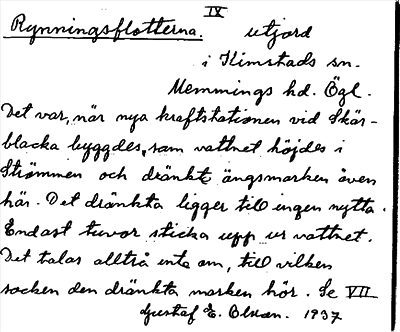 IX
Rynningsflotterna. utjord
i Kimstads sn.
Memmings hd. Ögl.
Det var, när nya kraftstationen vid Skär-
blacka byggdes, som vattnet höjdes i
Strömmen och dränkte ängsmarken även
här. Det dränkta ligger till ingen nytta.
Endast tuvor sticka upp ur vattnet.
Det talas alltså inte om, till vilken
socken den dränkta marken hör. Se VII
Gustaf E. Olsson. 1937